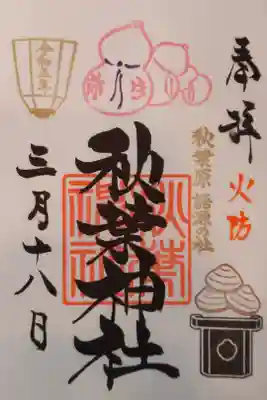 奉拝
火防
秋葉原 語源の社
弥生
秋葉神社
秋葉
神社
令和五年
三月十八日